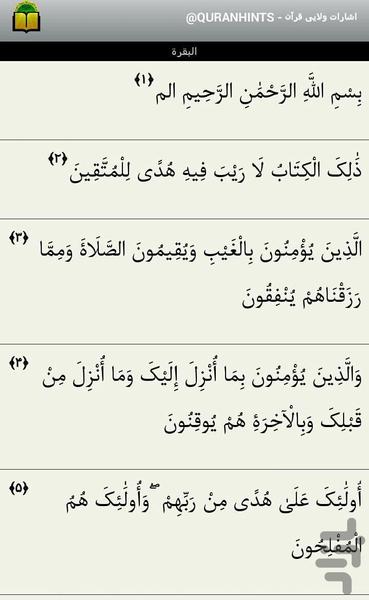 اشارات ولایی قرآن - QURANHINTS@
البقرة
بِسْمِ اللَّهِ الرَّحْمَٰنِ الرَّحِيمِ الم ﴿۱﴾
ذَٰلِكَ الْكِتَابُ لَا رَيْبَ فِيهِ هُدًى لِلْمُتَّقِينَ ﴿۲﴾
الَّذِينَ يُؤْمِنُونَ بِالْغَيْبِ وَيُقِيمُونَ الصَّلَاةَ وَمِمَّا ﴿۳﴾
رَزَقْنَاهُمْ يُنْفِقُونَ
وَالَّذِينَ يُؤْمِنُونَ بِمَا أُنْزِلَ إِلَيْكَ وَمَا أُنْزِلَ مِنْ ﴿۴﴾
قَبْلِكَ وَبِالْآخِرَةِ هُمْ يُوقِنُونَ
أُولَٰئِكَ عَلَىٰ هُدًى مِنْ رَبِّهِمْ ۖ وَأُولَٰئِكَ هُمُ ﴿۵﴾
الْمُفْلِحُونَ